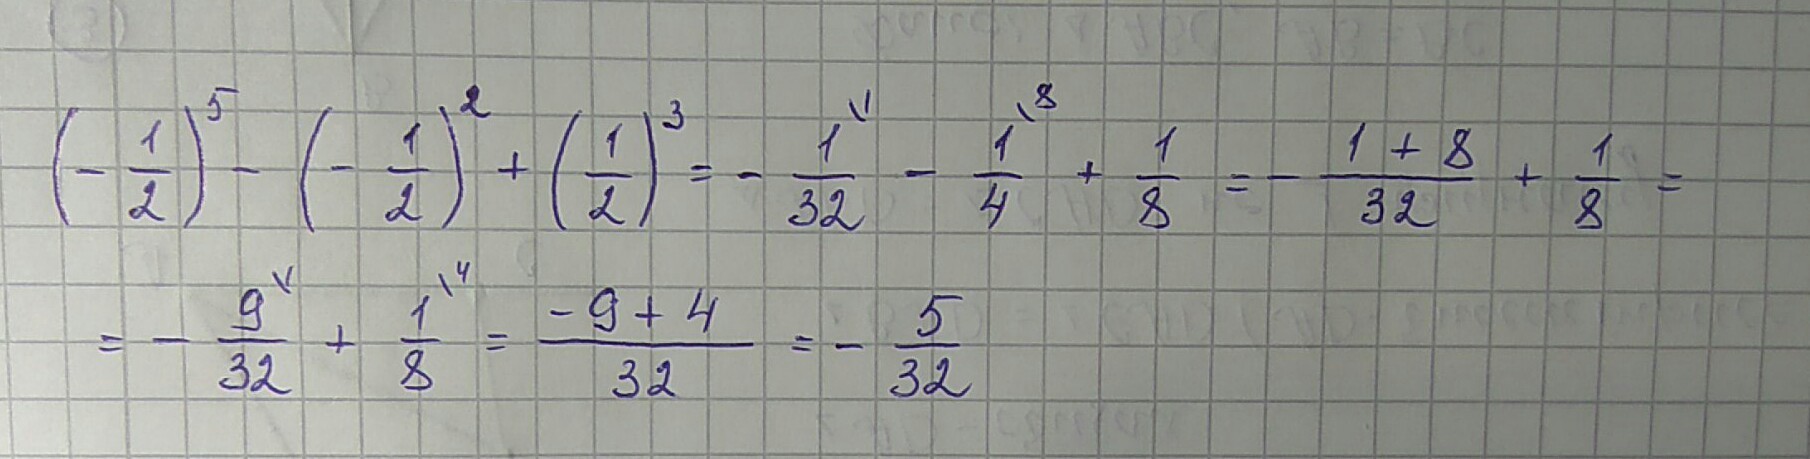 (-1/2)^5 - (-1/2)^2 + (1/2)^3 = - 1\1/32 - 1\8/4 + 1/8 = - (1+8)/32 + 1/8 =
= - 9\1/32 + 1\4/8 = (-9+4)/32 = - 5/32